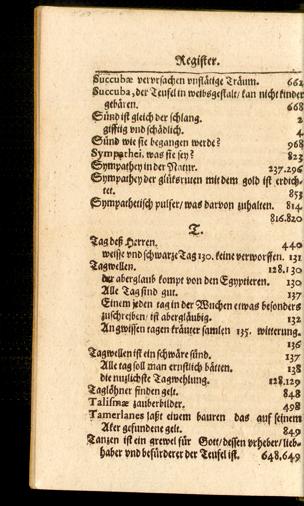 Register.
Succubæ verursachen unflätige Träum. 662
Succuba, der Teufel in weibsgestalt/ kan nicht kinder
gebären. 668
Sünd ist gleich der schlang. 2
gifftig und schädlich. 4
Sünd wie sie begangen werde? 968
Sympathei, was sie sey? 823
Sympathey in der Natur. 237.296
Sympathey der glüksruten mit dem gold ist erdich-
tet. 853
Sympathetisch pulfer/ was darvon zuhalten. 814
816.820
T.
Tag deß Herren. 440
weisse vnd schwarze Tag 130. keine verworffen. 131
Tagwellen. 128.130
der aberglaub kompt von den Egyptieren. 130
Alle Tag sind gut. 137
Einem jeden tag in der Wuchen etwas besonders
zuschreiben/ ist abergläubig. 132
An gwissen tagen kräuter samlen 135. witterung.
136
Tagwellen ist ein schwäre sünd. 137
Alle tag soll man ernstlich bätten. 138
die nuzlichste Tagwehlung. 128,129
Taglöhner finden gelt. 848
Talismæ zauberbilder. 498
Tamerlanes laßt einem bauren das auf seinem
Aker gefundene gelt. 849
Tanzen ist ein grewel für Gott/ dessen vrheber/ lieb-
haber vnd befürderer der Teufel ist. 648,649